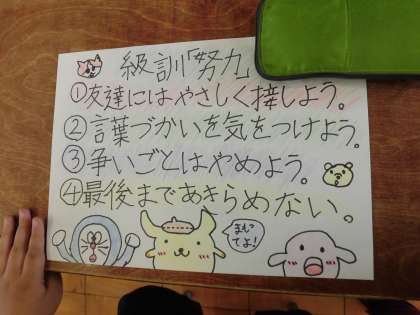 級訓「努力
①友達にはやさしく接しよう。
②言葉づかいを気をつけよう。
③争いごとはやめよう。
④最後まであきらめない。
まもってよ!